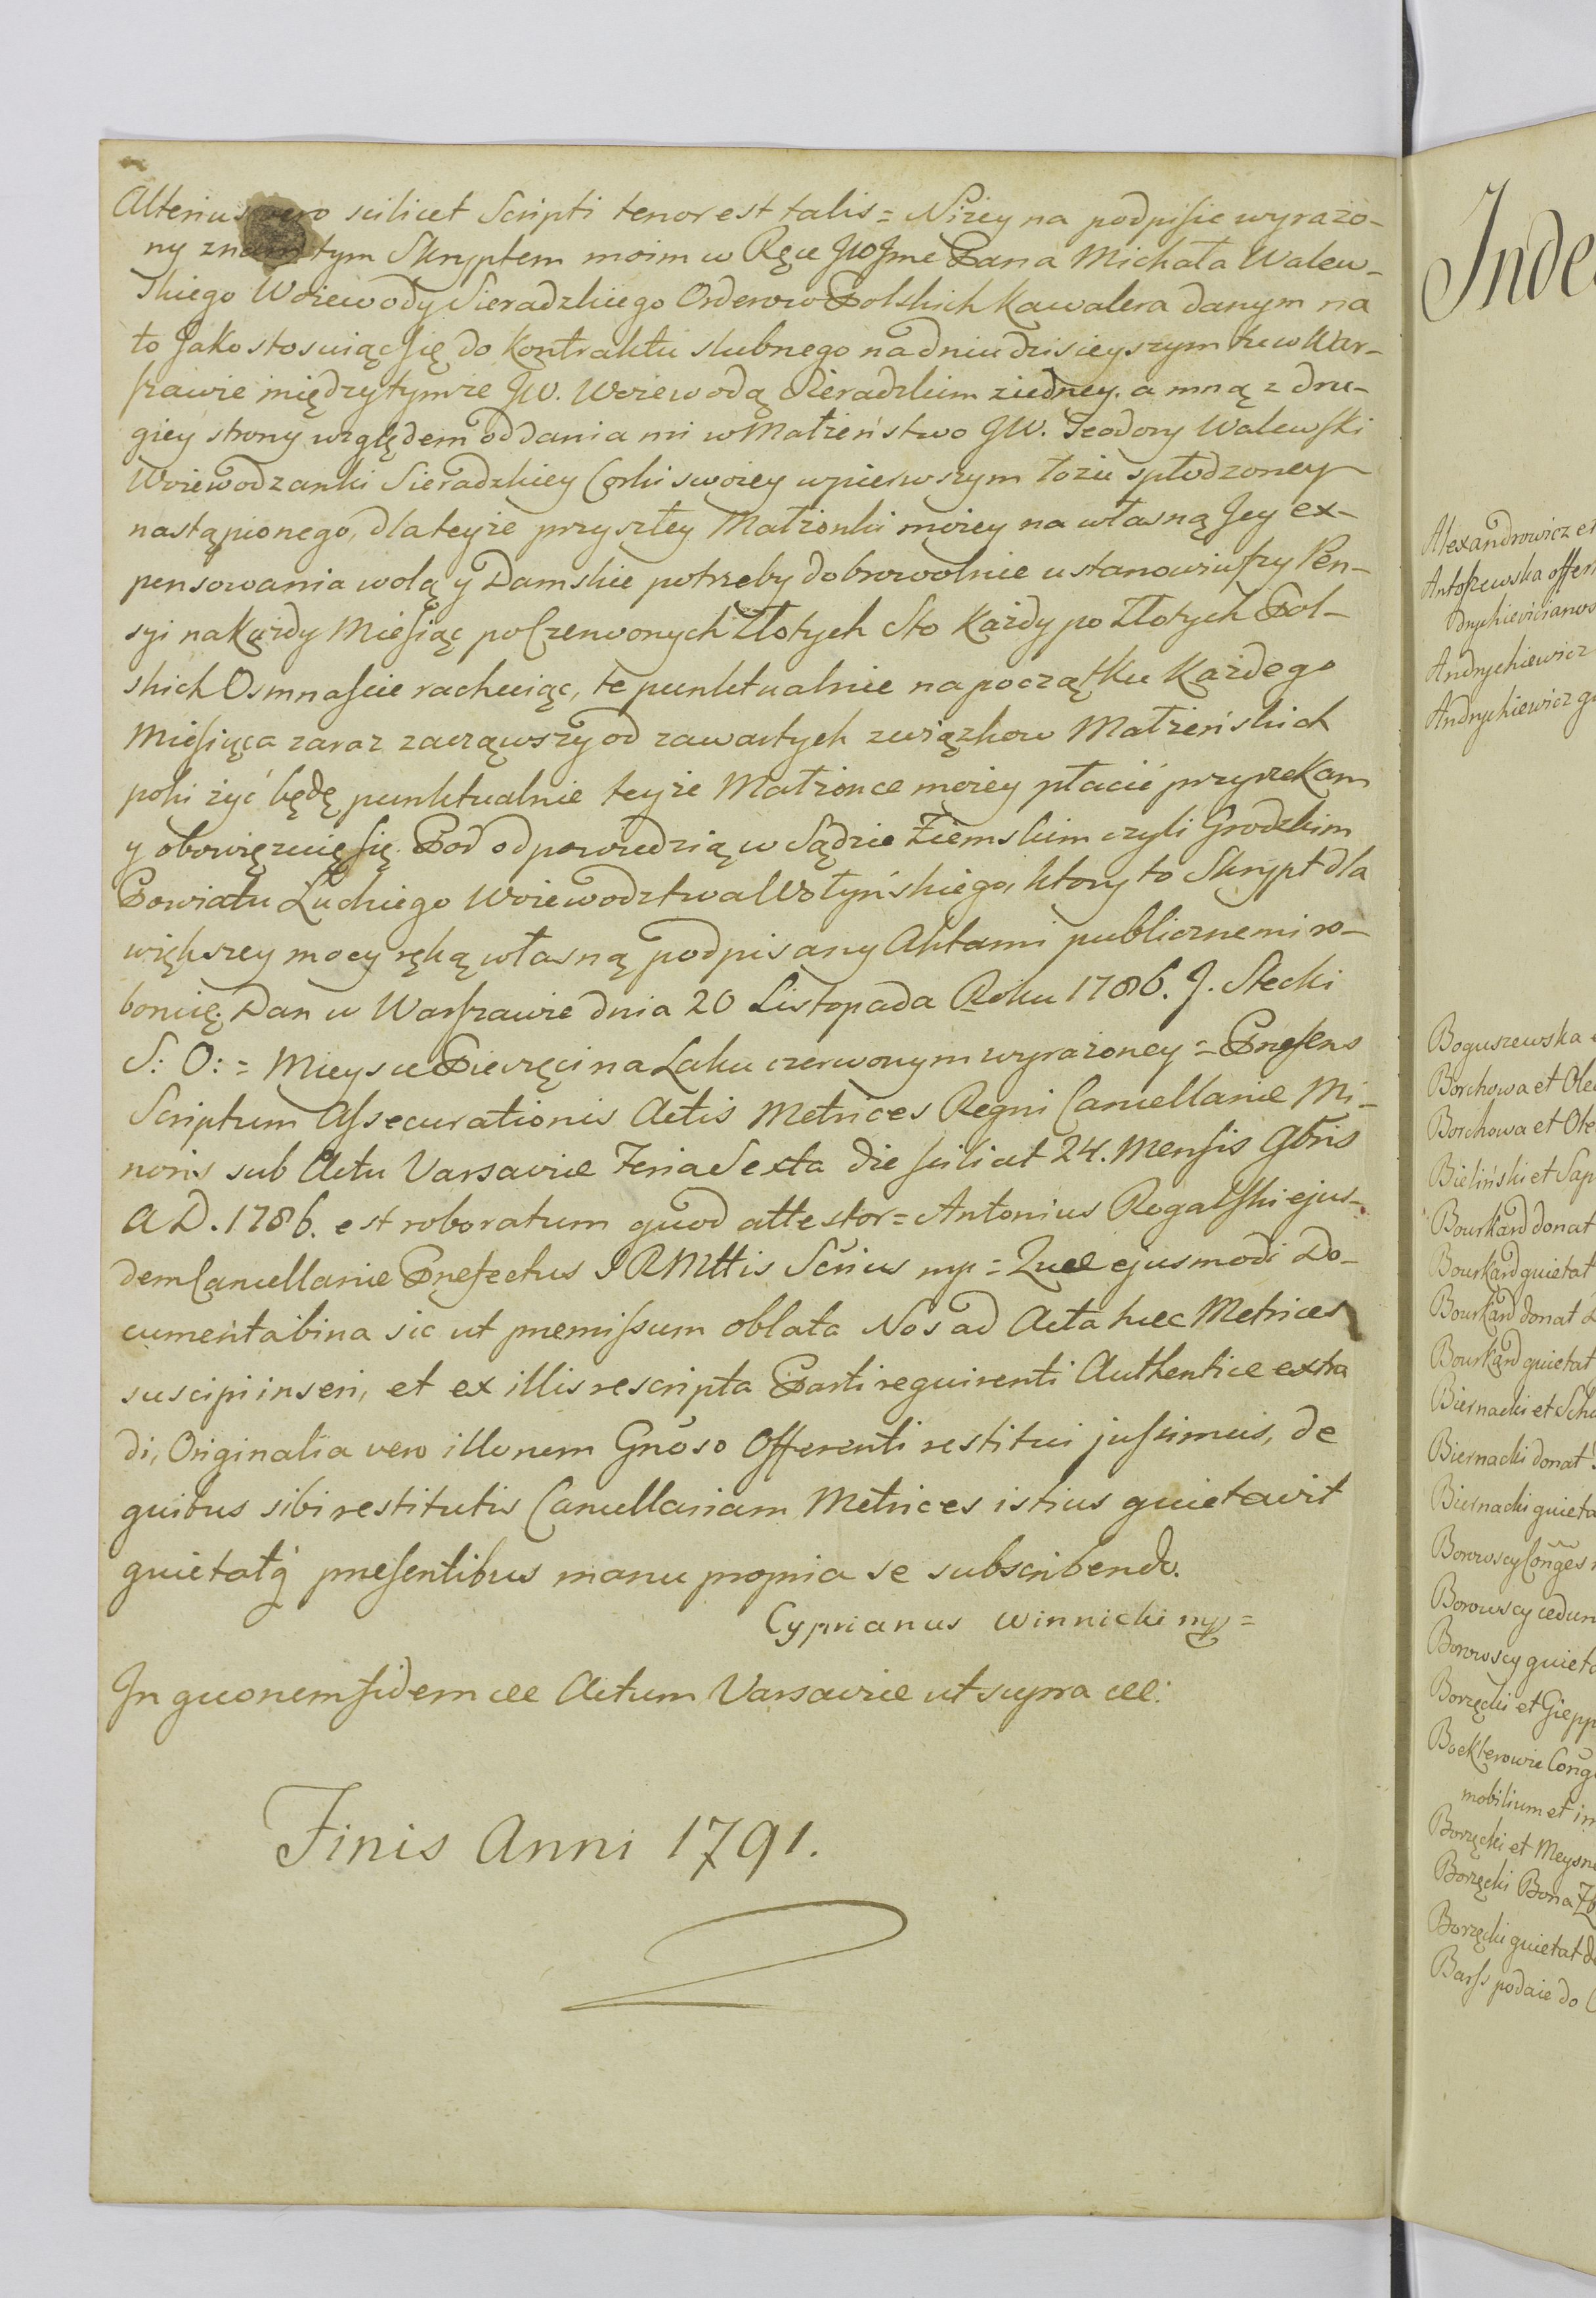 Alterius vero scilicet Scripti tenor est talis = Niżey na podpisie wyrażo-
ny znam tym Skryptem moim w Ręce JWJme Pana Michała Walew-
skiego Woiewody Sieradzkiego Orderow Polskich Kawalera danym na
to Jako stosuiąc się do Kontraktu slubnego na dniu dzisieyszym tu w War-
szawie między tymże JW. Woiewodą Sieradzkim ziedney. a mną z dru-
giey strony względem oddania mi w Małżeństwo JW. Teodory Walewski
Woiewodzanki Sieradzkiey Corki swoiey wpierwszym łożu spłodzoney
nastąpionego, dla teyże przyszłey Małżonki moiey na własną Jey ex-
pensowania wolą y Damskie potrzeby dobrowolnie ustanowiwszy Pen-
syi na Każdy Miesiąc po Czerwonych Złotych Sto Każdy po Złotych Pol-
skich Osmnascie rachuiąc, te punktualnie na początku Każdego
Miesiąca zaraz zacząwszy od zawartych związkow Małżeńskich
poki żyć będę punktualnie teyże Małżonce moiey płacić przyrzekam
y obowięzuię się. Pod odpowiedzią w Sądzie Ziemskim czyli Grodzkim
Powiatu Łuckiego Woiewodztwa Wołyńskiego, ktory to Skrypt dla
większey mocy ręką własną podpisany Aktami publicznemi ro-
boruię. Dan w Warszawie dnia 20 Listopada Roku 1786. J. Stecki
S: O: = Mieysce Pieczęci na Laku czerwonym wyrażoney = Præsens
Scriptum Assecurationis Actis Metrices Regni Cancellariæ Mi-
noris sub Actu Varsaviæ Feria Sexta die scilicet 24. Mensis 9bris
A D. 1786. est roboratum quod attestor = Antonius Rogalski ejus-
dem Cancellariæ Præfectus S R Mttis Scrius mp = Quæ ejusmodi Do-
cumenta bina sic ut præmissum oblata Nos ad Acta hæc Metrices
suscipi inseri, et ex illis rescripta Parti requirenti Authentice extra
di, Originalia vero illorum Gnoso Offerenti restitui jussimus, de
quibus sibi restitutis Cancellariam Metrices istius quietavit
quietatq præsentibus manu propria se subscribendo.
Cyprianus Winnicki mp =
In quorum fidem &c Actum Varsaviæ ut supra &c.
Finis Anni 1791.
Inde
Alexandrowicz et
Antoszewska offert
Andrychiewicz
Andrychiewicz
Boguszewska
Borchowa et
Borchowa et
Bieliński et Sap
Bourkard donat
Bourkard quietat
Bourkard donat
Bourkard quietat
Biernacki et
Biernacki donat
Biernacki quieta
Borowscy
Borowscy cedun
Borowscy quieta
Borzęcki et
mobilium et im
Borzęcki et
Borzęcki Bona
Borzęcki quietat
Barss podaie do